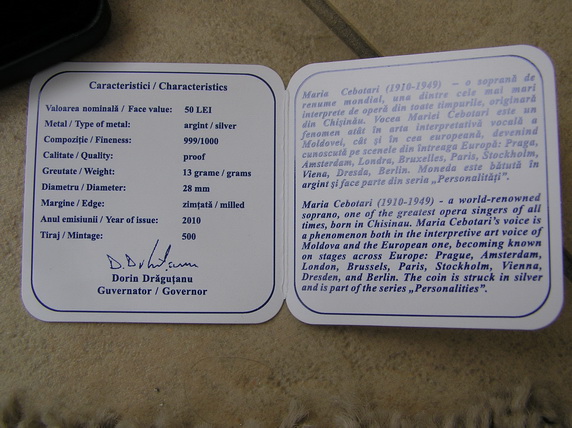 Caracteristici / Characteristics
Valoarea nominală / Face value: 50 LEI
Metal / Type of metal: argint / silver
Compoziţie / Fineness: 999/1000
Calitate / Quality: proof
Greutate / Weight: 13 grame / grams
Diametru / Diameter: 28 mm
Margine / Edge: zimţată / milled
Anul emisiunii / Year of issue: 2010
Tiraj / Mintage: 500
Dorin Drăguţanu
Guvernator / Governor
Maria Cebotari (1910-1949) – o soprană de
renume mondial, una dintre cele mai mari
interprete de operă din toate timpurile, originară
din Chişinău. Vocea Mariei Cebotari este un
fenomen atât în arta interpretativă vocală a
Moldovei, cât şi în cea europeană, devenind
cunoscută pe scenele din întreaga Europă: Praga,
Amsterdam, Londra, Bruxelles, Paris, Stockholm,
Viena, Dresda, Berlin. Moneda este bătută în
argint şi face parte din seria „Personalităţi”.
Maria Cebotari (1910-1949) - a world-renowned
soprano, one of the greatest opera singers of all
times, born in Chisinau. Maria Cebotari's voice is
a phenomenon both in the interpretive art voice of
Moldova and the European one, becoming known
on stages across Europe: Prague, Amsterdam,
London, Brussels, Paris, Stockholm, Vienna,
Dresden, and Berlin. The coin is struck in silver
and is part of the series „Personalities”.